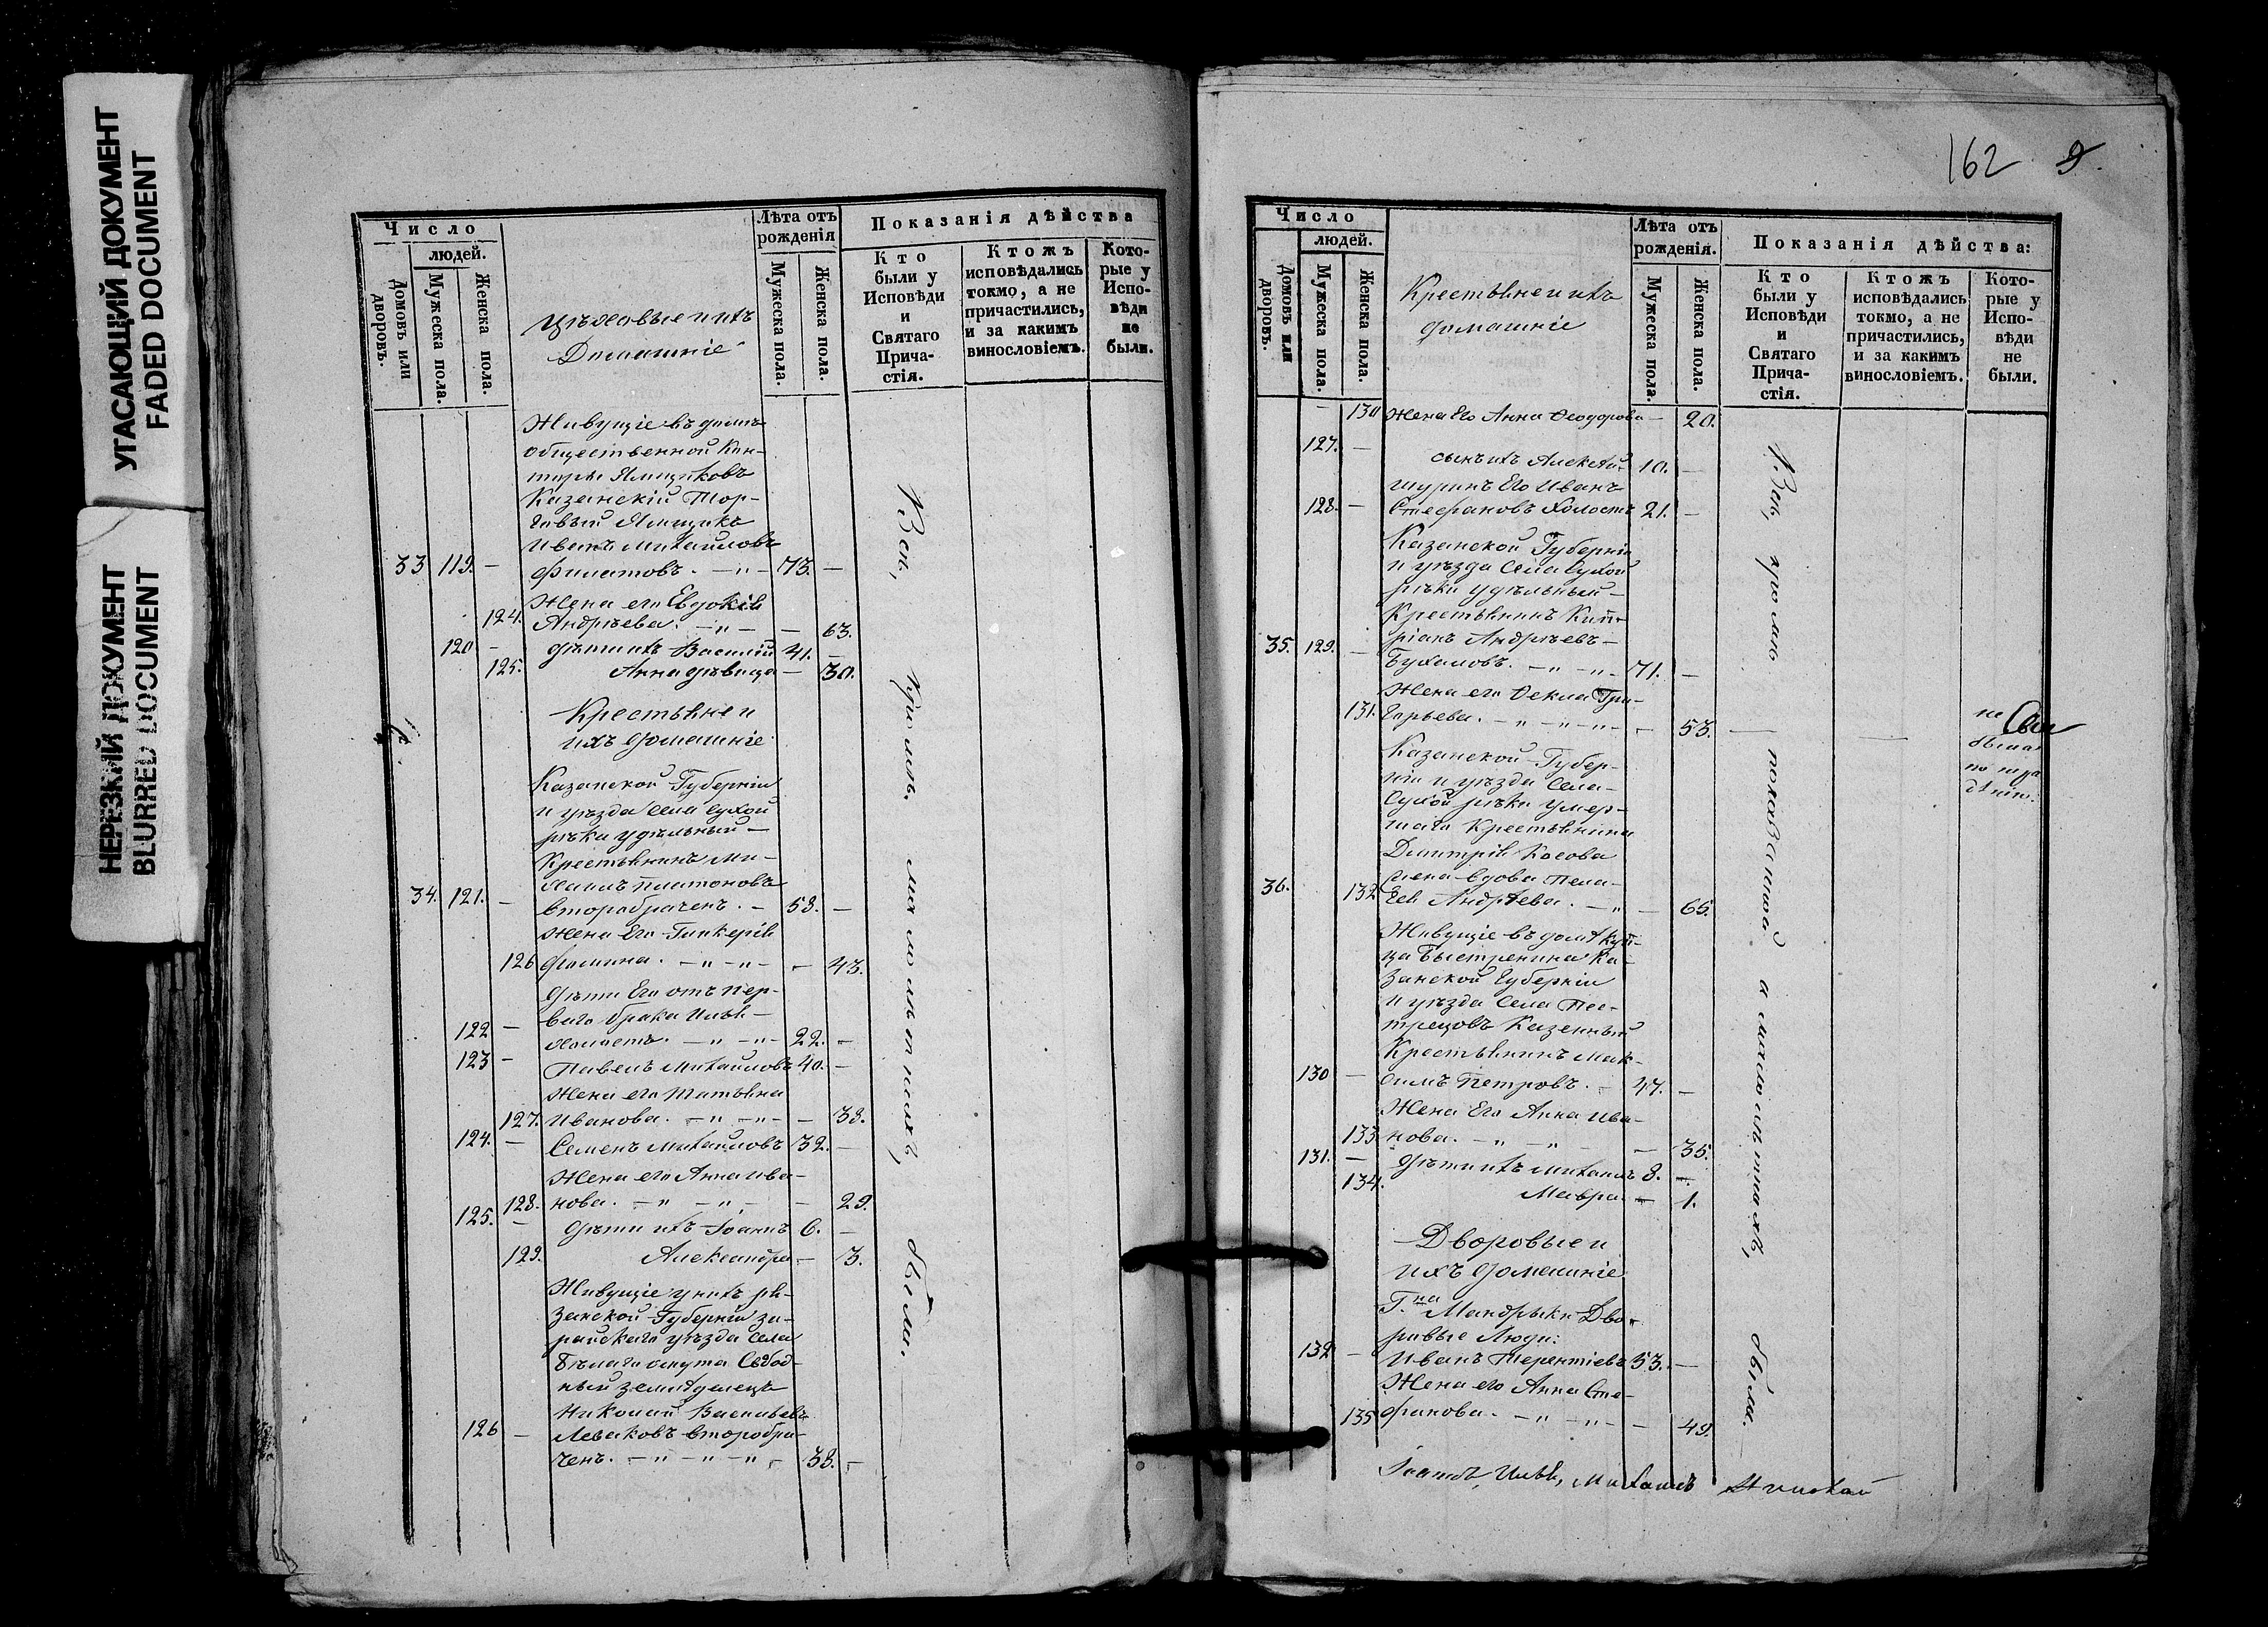 УГАСАЮЩИЙ ДОКУМЕНТ
FADED DOCUMENT
НЕРЕЗКИЙ ДОКУМЕНТ
BLURRED DOCUMENT
Число
людей.
Домовъ или дворовъ.
Мужеска пола.
Женска пола.
Цѣховые и ихъ
Домашніе
Лѣта отъ
рожденія
Мужеска пола.
Женска пола.
Показанія дѣйства
Кто
были у
Исповѣди
и
Святаго
Прича-
стія.
Ктожъ
исповѣдались
токмо, а не
причастились,
и за какимъ
винословіемъ.
Кото-
рые у
Испо-
вѣди
не
были.
Живущіе въ домѣ
общественной Кон-
торы Ямщиковъ
Казанскій Тор-
говый Ямщикъ
Иванъ Михайловъ
33 119. – Филатовъ. – „ – 73. –
Жена его Евдокія
124. Андрѣева. – „ – – 63.
120 – дѣти ихъ Василій 41. –
125. Анна дѣвица – 30.
Крестьяне и
ихъ домашніе
Казанской Губерніи
и уѣзда Села Сухой
рѣки удѣльный –
Крестьянинъ Ми-
хаилъ Платоновъ
34. 121. – второбраченъ. – 58. –
Жена Его Гликерія
126 Фомина. – „ – „ – – 43.
Дѣти Его отъ пер-
ваго брака Илья –
122 – холостъ. – „ – „ – 22. –
123 – Павелъ Михайловъ 40. –
Жена его Татьяна
127. Иванова. – „ – „ – – 38.
124. – Семенъ Михайловъ 32. –
Жена его Анна Ива-
128. нова. – „ – „ – – 29.
125. – Дѣти ихъ Іоаннъ 6. –
129. Александра – 3.
Живущіе у нихъ ря-
занской Губерніи за-
райскаго уѣзда Села
Бѣлаго омута Свобод-
ный земледѣлецъ
Николай Васильевъ
126 – Леваковъ второбра-
ченъ. – „ – „ – „ – 38. –
Всѣ, кромѣ малолѣтнихъ, были.
162 9.
Число
людей.
Домовъ или дворовъ.
Мужеска пола.
Женска пола.
Крестьяне и ихъ
домашніе
Лѣта отъ
рожденія.
Мужеска пола.
Женска пола.
Показанія дѣйства:
Кто
были у
Исповѣди
и
Святаго
Прича-
стія.
Ктожъ
исповѣдались
токмо, а не
причастились,
и за какимъ
винословіемъ.
Кото-
рые у
Испо-
вѣди
не
были.
– 130 Жена Его Анна Ѳеодорова – 20.
127. – сынъ ихъ Алексѣй 10. –
шуринъ Его Иванъ
128. – Стефановъ холостъ 21. –
Казанской Губерніи
и уѣзда Села Сухой
рѣки удѣльный –
Крестьянинъ Кип-
35. 129. – ріанъ Андрѣевъ –
Бухаловъ. – „ – „ – 71. –
Жена его Ѳекла Гри-
131. горьева. – „ – „ – „ – – 53.
Казанской Губер-
ніи и уѣзда Села
Сухой рѣки умер-
шаго Крестьянина
Димитрія Косова
жена вдова Пела-
36. 132 гея Андрѣева. – „ – 65.
Живущіе въ домѣ Куп-
ца Быстренина Ка-
занской Губерніи
и уѣзда Села Пес-
трецовъ Казенный
Крестьянинъ Мак-
130 – симъ Петровъ. – 47. –
Жена Его Анна Ива-
133 нова. – „ – „ – 35.
131. – Дѣти ихъ Михаилъ 8. –
134. Мавра – 1.
Дворовые и
ихъ домашніе
Г.на Мандрыки Дво-
ровые Люди:
132 – Иванъ Терентіевъ 53. –
Жена его Анна Сте-
135 фанова. – „ – „ – – 49.
Всѣ, кромѣ показанной а малолѣтнихъ, были.
не
была
Іоаннъ, Илья, Михаилъ Николай